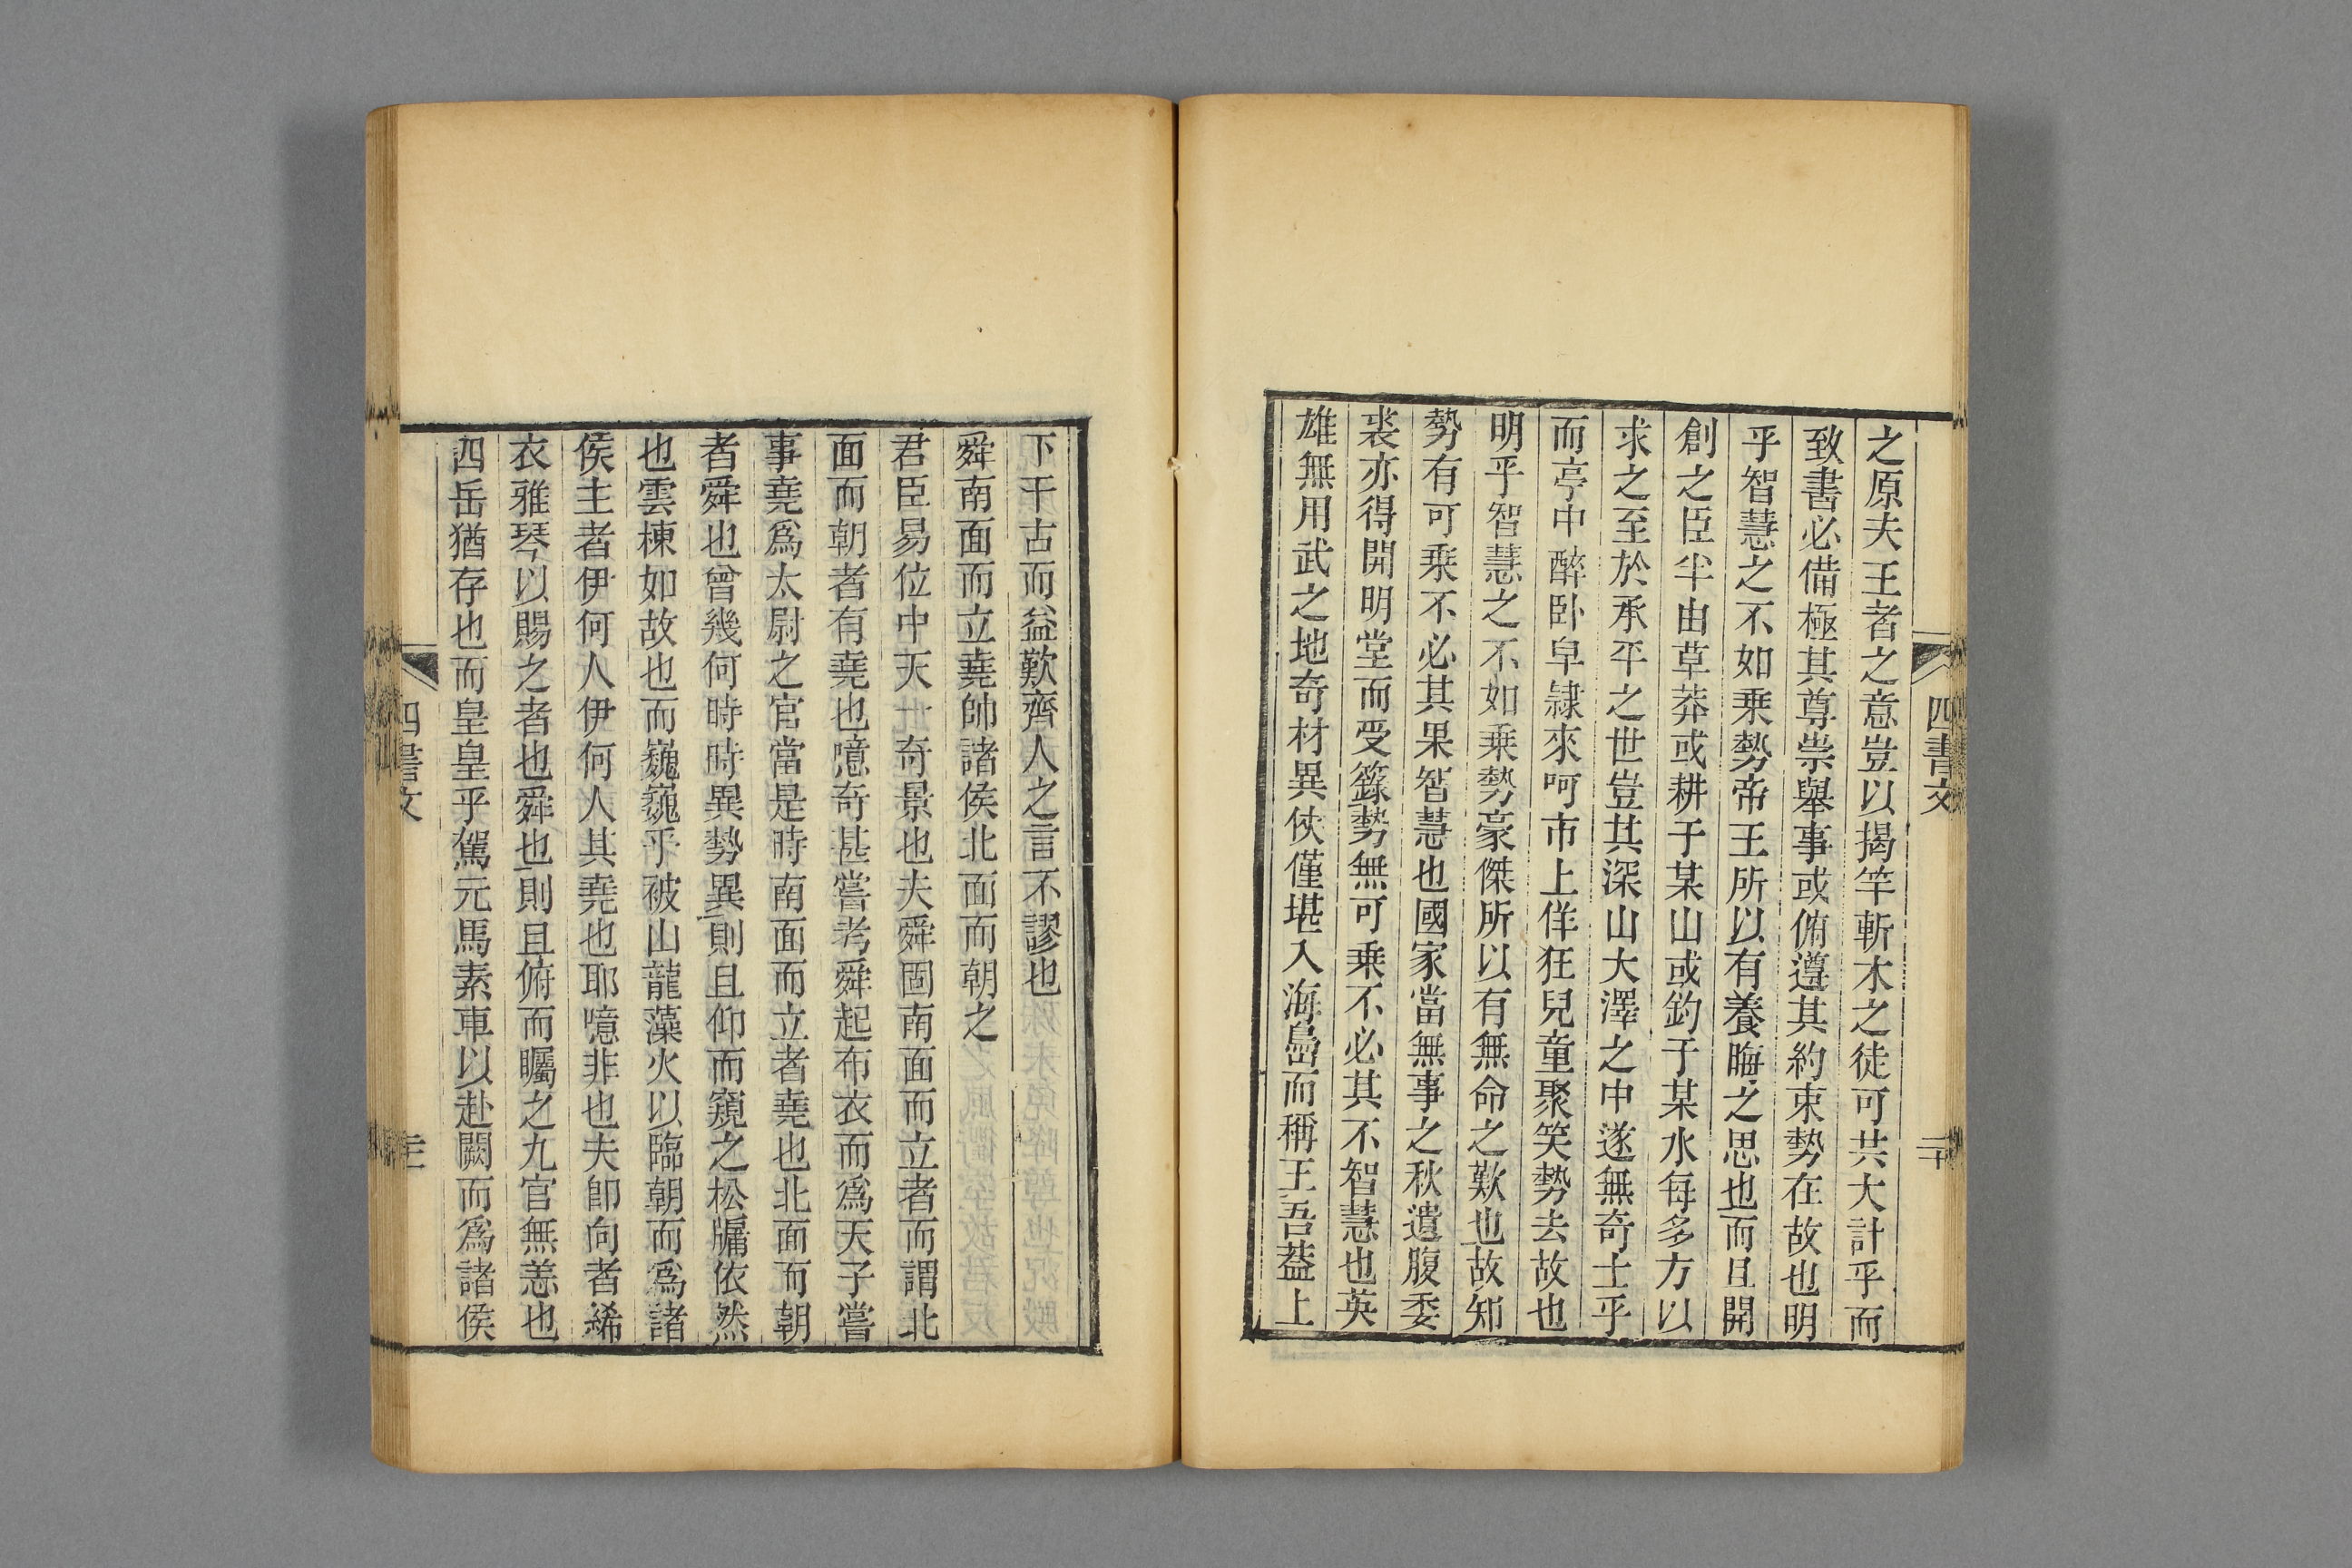 之原夫王者之意豈以揭竿斬木之徒可共大計乎而
致書必備極其尊崇舉事或俯遵其約束勢在故也明
乎智慧之不如乗勢帝王所以有養晦之思也而且開
創之臣半由草莽或耕于某山或釣于某水每多方以
求之至於承平之世豈其深山大澤之中遂無奇士乎
而亭中醉卧皁隷來呵市上佯狂兒童聚笑勢去故也
明乎智慧之不如乗勢豪傑所以有無命之歎也故知
勢有可乗不必其果智慧也國家當無事之秋遺腹委
裘亦得開明堂而受籙勢無可乗不必其不智慧也英
雄無用武之地奇材異俠僅堪入海島而稱王吾葢上
四書文
二十
下千古而益歎齊人之言不謬也
舜南面而立堯帥諸侯北面而朝之
君臣易位中天一奇景也夫舜固南面而立者而謂北
面而朝者有堯也噫奇甚嘗考舜起布衣而爲天子嘗
事堯爲太尉之官當是時南面而立者堯也北面而朝
者舜也曾幾何時時異勢異則且仰而窺之松牖依然
也雲棟如故也而巍巍乎被山龍藻火以臨朝而爲諸
侯主者伊何人伊何人其堯也耶噫非也夫卽向者絺
衣雅琴以賜之者也舜也則且俯而矚之九官無恙也
四岳猶存也而皇皇乎駕元馬素車以赴闕而爲諸侯
四書文